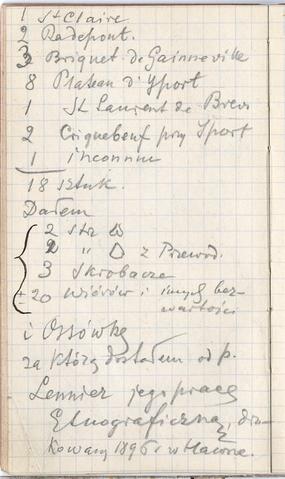 1 St Claire
2 Radepont.
3 Briquet de Gainneville
8 Plateau d'Yport
1 St Laurent de Brevs
2 Criquebeuf przy Yport
1 inconnu
18 sztuk.
Dałem
2 strz △
2 " △ z Przewod.
3 Skrobacze
20 wiórów i innych bez-
wartości
i Ossówkę
za którą dostałem od p.
Lennier jego pracę
Etnograficzną, dru-
kowany 1896 r w Havre.